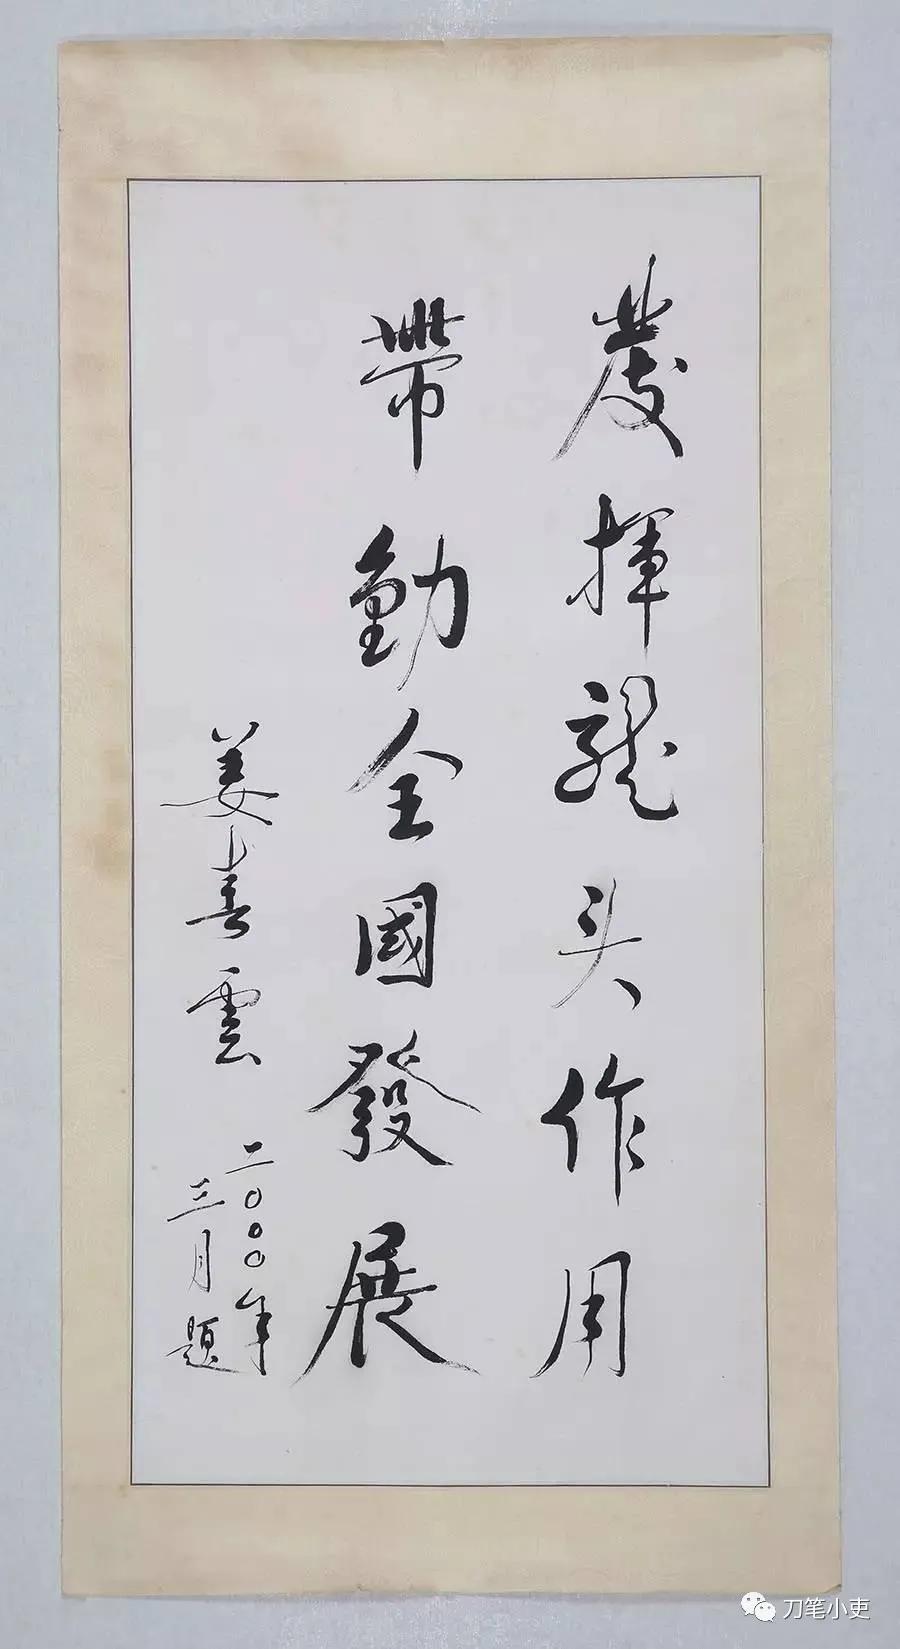 發揮龍头作用
帶動全國發展
姜春雲
二〇〇〇年
三月題
刀笔小吏